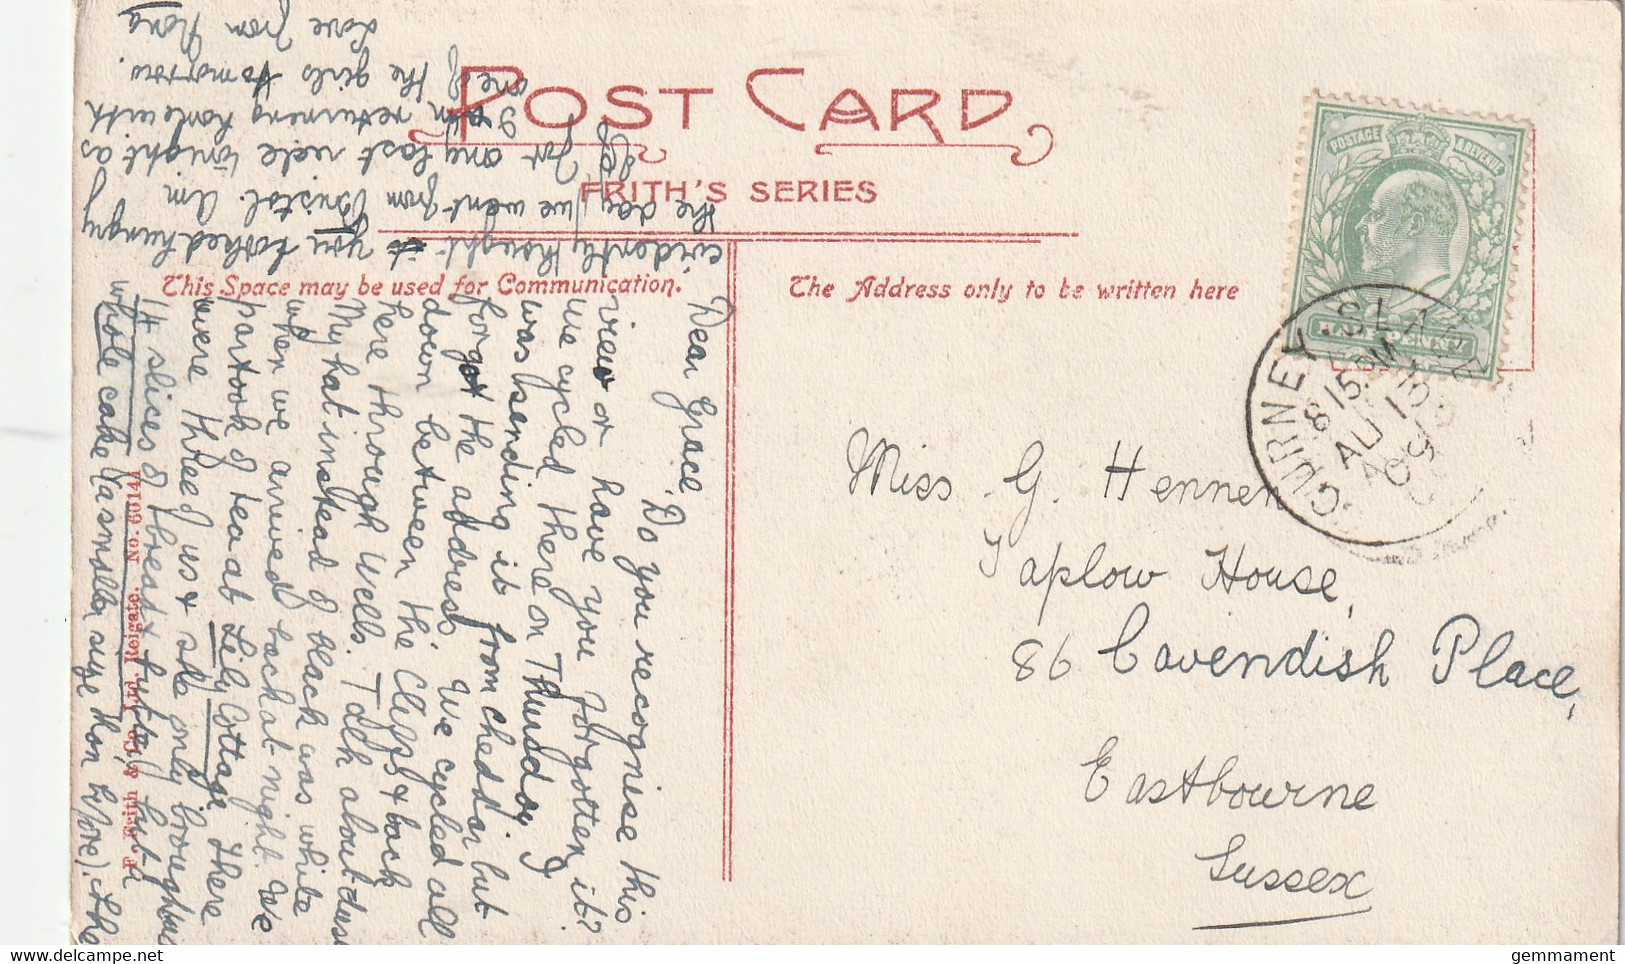 POST CARD
FRITH'S SERIES
This Space may be used for Communication.
The Address only to be written here
POSTAGE & REVENUE
GURNEY SLADE
8 15 PM
AU 13
09
Miss G. Hennen
Taplow House,
86 Cavendish Place,
Eastbourne
Sussex
Dear Grace,
Do you recognise this
view or have you forgotten it?
We cycled there on Thursday I
was sending it from cheddar but
forgot the address. We cycled all
down between the Cliffs & back
here through Wells. Talk about dust
My hat instead of black was white
when we arrived back at night. We
partook of tea at Lily Cottage, there
were three of us & she only brought us
14 slices of bread & butter, but a
whole cake (a smaller size than before). She
evidently thought you looked hungry
the day we went from Bristol. Am
off for my last ride tonight as
I am returning home with
one of the girls tomorrow.
Love from
F. Frith & Co. Ltd. Reigate. No. 60144
gemmament